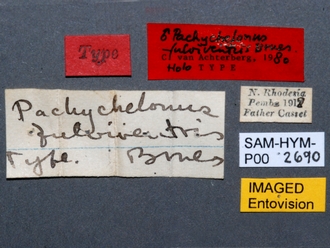 Type
♂ Pachychelonus
fulviventris Brues
C. van Achterberg, 1980
Holo TYPE
Pachychelonus
fulviventris
Type. Brues
N. Rhodesia
Pemba 1912
Father Casset
SAM-HYM-
P00 2690
IMAGED
Entovision